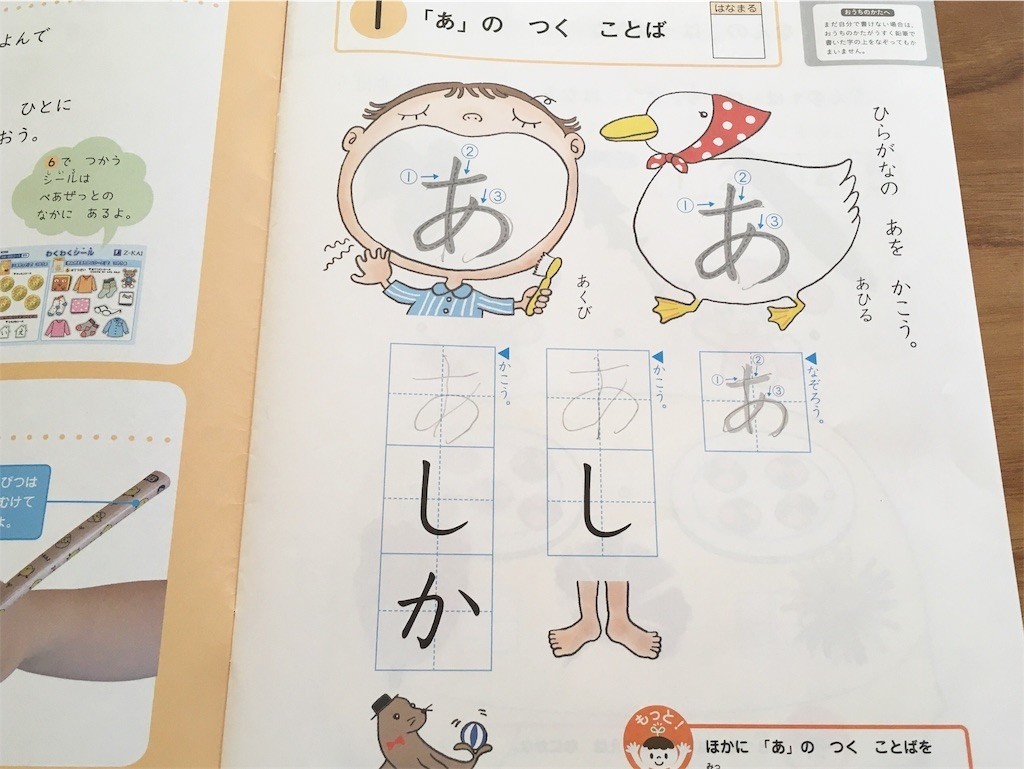 よんで
ひとに
おう。
6で つかう
シールは
しいる
べあぜっとの
なかに あるよ。
わくわくシール
Z-KAI
びつは
むけて
よ。
1
「あ」の つく ことば
はなまる
おうちのかたへ
まだ自分で書けない場合は、
おうちのかたがうすく鉛筆で
書いた字の上をなぞってもか
まいません。
ひらがなの あを かこう。
あひる
① ② ③
あ
あくび
① ② ③
あ
なぞろう。
① ② ③
あ
かこう。
あし
かこう。
あしか
もっと!
ほかに 「あ」の つく ことばを